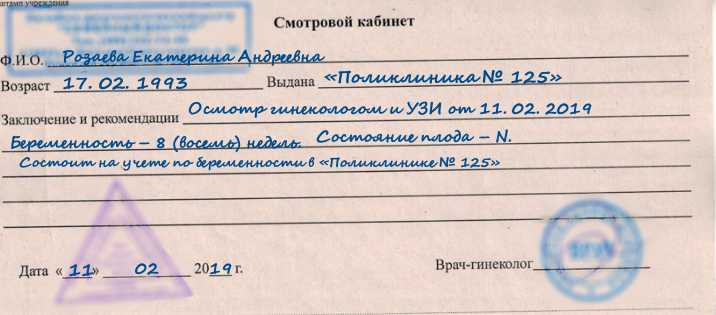 штамп учреждения
Смотровой кабинет
Ф.И.О. Розаева Екатерина Андреевна
Возраст 17. 02. 1993 Выдана «Поликлиника № 125»
Заключение и рекомендации Осмотр гинекологом и УЗИ от 11. 02. 2019
Беременность – 8 (восемь) недель. Состояние плода – N.
Состоит на учете по беременности в «Поликлинике № 125»
Дата «11» 02 2019 г. Врач-гинеколог